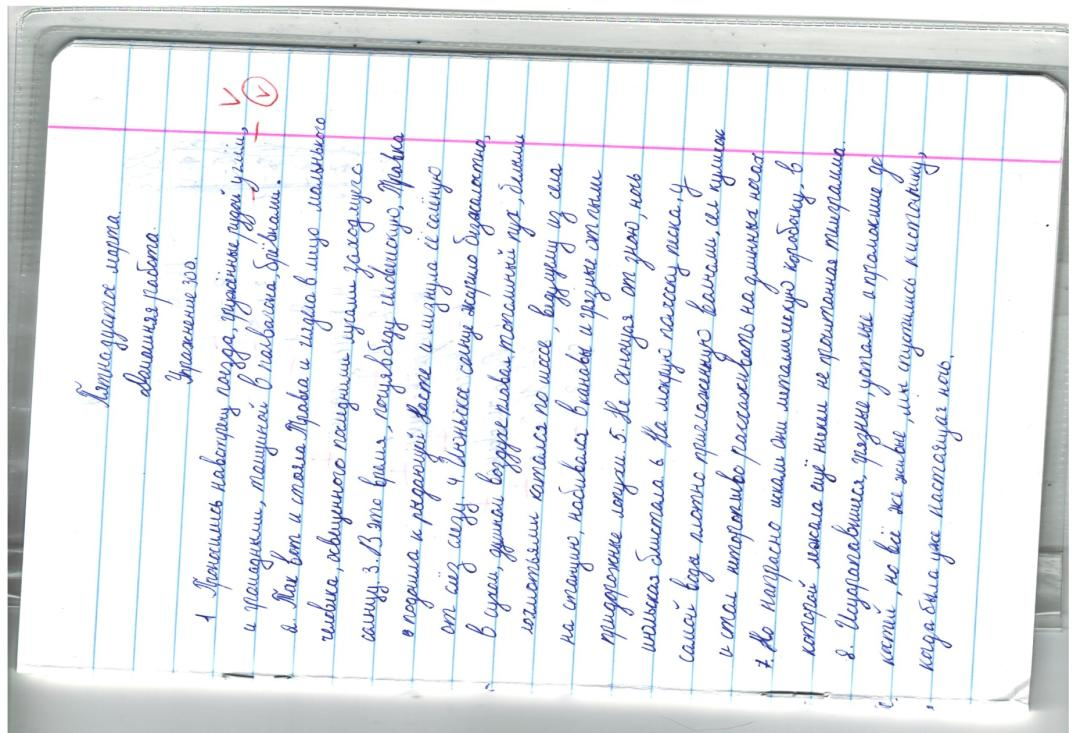 Пятнадцатое марта.
Домашняя работа.
Упражнение 300.
1 Проносились навстречу поезда, гружённые рудой углём,
и громадными, толщиной в полвагона, брёвнами.
2. Так вот и стояла Травка и глядела в лицо маленького
человека, освещенного последними лучами заходящего
солнца. 3. В это время, почуяв беду, шлёвскую, Травка
подошла к рыдающей Насте и лизнула её солёную
от слёз слезу. 4. Июньское солнце жарило безжалостно,
в сухом, душном воздухе плавал тополиный пух, белыми
хлопьями катался по шоссе, ведущему из села
на станцию, набивался в канавы и грязные от пыли
придорожные лопухи. 5. Не остывая от зною, ночь
июльская блистала 6. На мокрую полоску песка, у
самой воды плотно приглаженную волнами, сел куличок
и стал неторопливо расхаживать на длинных ногах.
7. Но напрасно искали они металлическую коробочку, в
которой лежала ещё никем не прочитанная телеграмма.
8. Исцарапавшиеся, грязные, усталые и промокшие до
костей, но всё же живые, мы спустились к источнику,
когда была уже настоящая ночь.